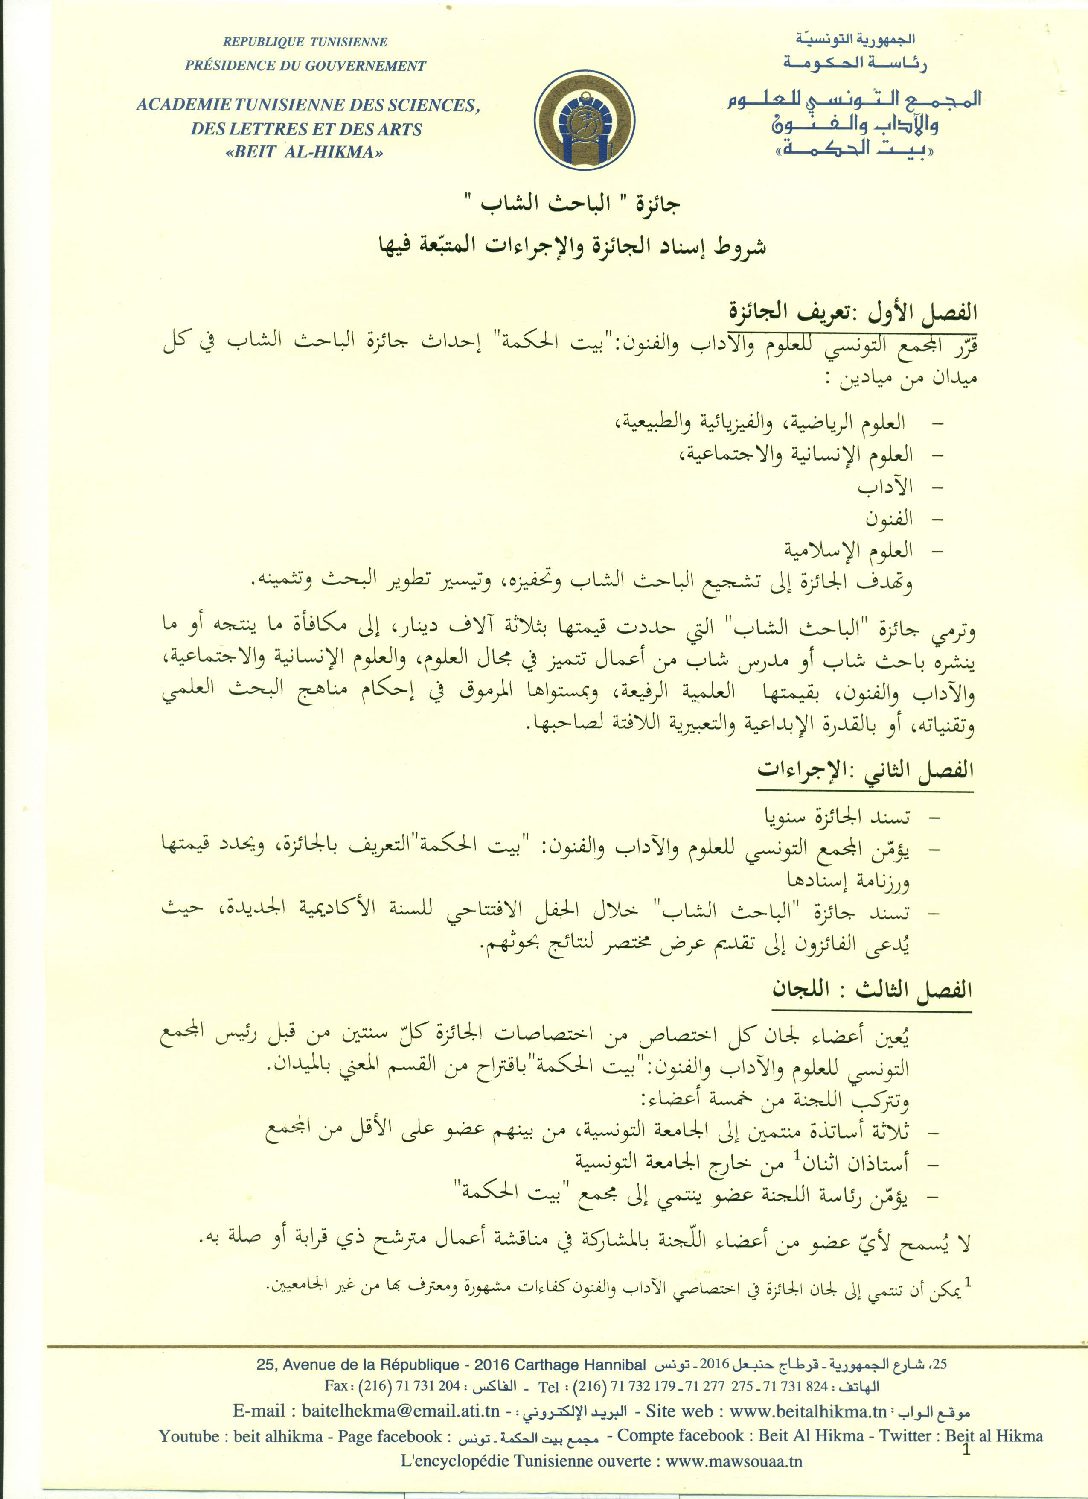 REPUBLIQUE TUNISIENNE
PRÉSIDENCE DU GOUVERNEMENT
ACADEMIE TUNISIENNE DES SCIENCES,
DES LETTRES ET DES ARTS
«BEIT AL-HIKMA»
الجمهورية التونسيّة
رئاسة الحكومة
المجمع التونسي للعلوم
والآداب والفنون
«بيت الحكمة»
جائزة " الباحث الشاب "
شروط إسناد الجائزة والإجراءات المتبّعة فيها
الفصل الأول :تعريف الجائزة
قرّر المجمع التونسي للعلوم والآداب والفنون:"بيت الحكمة" إحداث جائزة الباحث الشاب في كل
ميدان من ميادين :
– العلوم الرياضية، والفيزيائية والطبيعية،
– العلوم الإنسانية والاجتماعية،
– الآداب
– الفنون
– العلوم الإسلامية
وتهدف الجائزة إلى تشجيع الباحث الشاب وتحفيزه، وتيسير تطوير البحث وتثمينه.
وترمي جائزة "الباحث الشاب" التي حددت قيمتها بثلاثة آلاف دينار، إلى مكافأة ما ينتجه أو ما
ينشره باحث شاب أو مدرس شاب من أعمال تتميز في مجال العلوم، والعلوم الإنسانية والاجتماعية،
والآداب والفنون، بقيمتها العلمية الرفيعة، وبمستواها المرموق في إحكام مناهج البحث العلمي
وتقنياته، أو بالقدرة الإبداعية والتعبيرية اللافتة لصاحبها.
الفصل الثاني :الإجراءات
– تسند الجائزة سنويا
– يؤمّن المجمع التونسي للعلوم والآداب والفنون: "بيت الحكمة"التعريف بالجائزة، ويحدد قيمتها
ورزنامة إسنادها
– تسند جائزة "الباحث الشاب" خلال الحفل الافتتاحي للسنة الأكاديمية الجديدة، حيث
يُدعى الفائزون إلى تقديم عرض مختصر لنتائج بحوثهم.
الفصل الثالث : اللجان
يُعين أعضاء لجان كل اختصاص من اختصاصات الجائزة كلّ سنتين من قبل رئيس المجمع
التونسي للعلوم والآداب والفنون:"بيت الحكمة"باقتراح من القسم المعني بالميدان.
وتتركب اللجنة من خمسة أعضاء:
– ثلاثة أساتذة منتمين إلى الجامعة التونسية، من بينهم عضو على الأقل من المجمع
– أستاذان اثنان1 من خارج الجامعة التونسية
– يؤمّن رئاسة اللجنة عضو ينتمي إلى مجمع "بيت الحكمة"
لا يُسمح لأيّ عضو من أعضاء اللّجنة بالمشاركة في مناقشة أعمال مترشح ذي قرابة أو صلة به.
1 يمكن أن تنتمي إلى لجان الجائزة في اختصاصي الآداب والفنون كفاءات مشهورة ومعترف بها من غير الجامعيين.
25, Avenue de la République - 2016 Carthage Hannibal 25، شارع الجمهورية ـ قرطاج حنبعل 2016ـ تونس
Fax : (216) 71 731 204 : الفاكس - Tel : (216) 71 732 179 ـ 71 277 275 ـ 71 731 824 : الهاتف
E-mail : baitelhekma@email.ati.tn - : البريد الإلكتروني - Site web : www.beitalhikma.tn : موقع الواب
Youtube : beit alhikma - Page facebook : مجمع بيت الحكمة ـ تونس - Compte facebook : Beit Al Hikma - Twitter : Beit al Hikma
1
L'encyclopédie Tunisienne ouverte : www.mawsouaa.tn